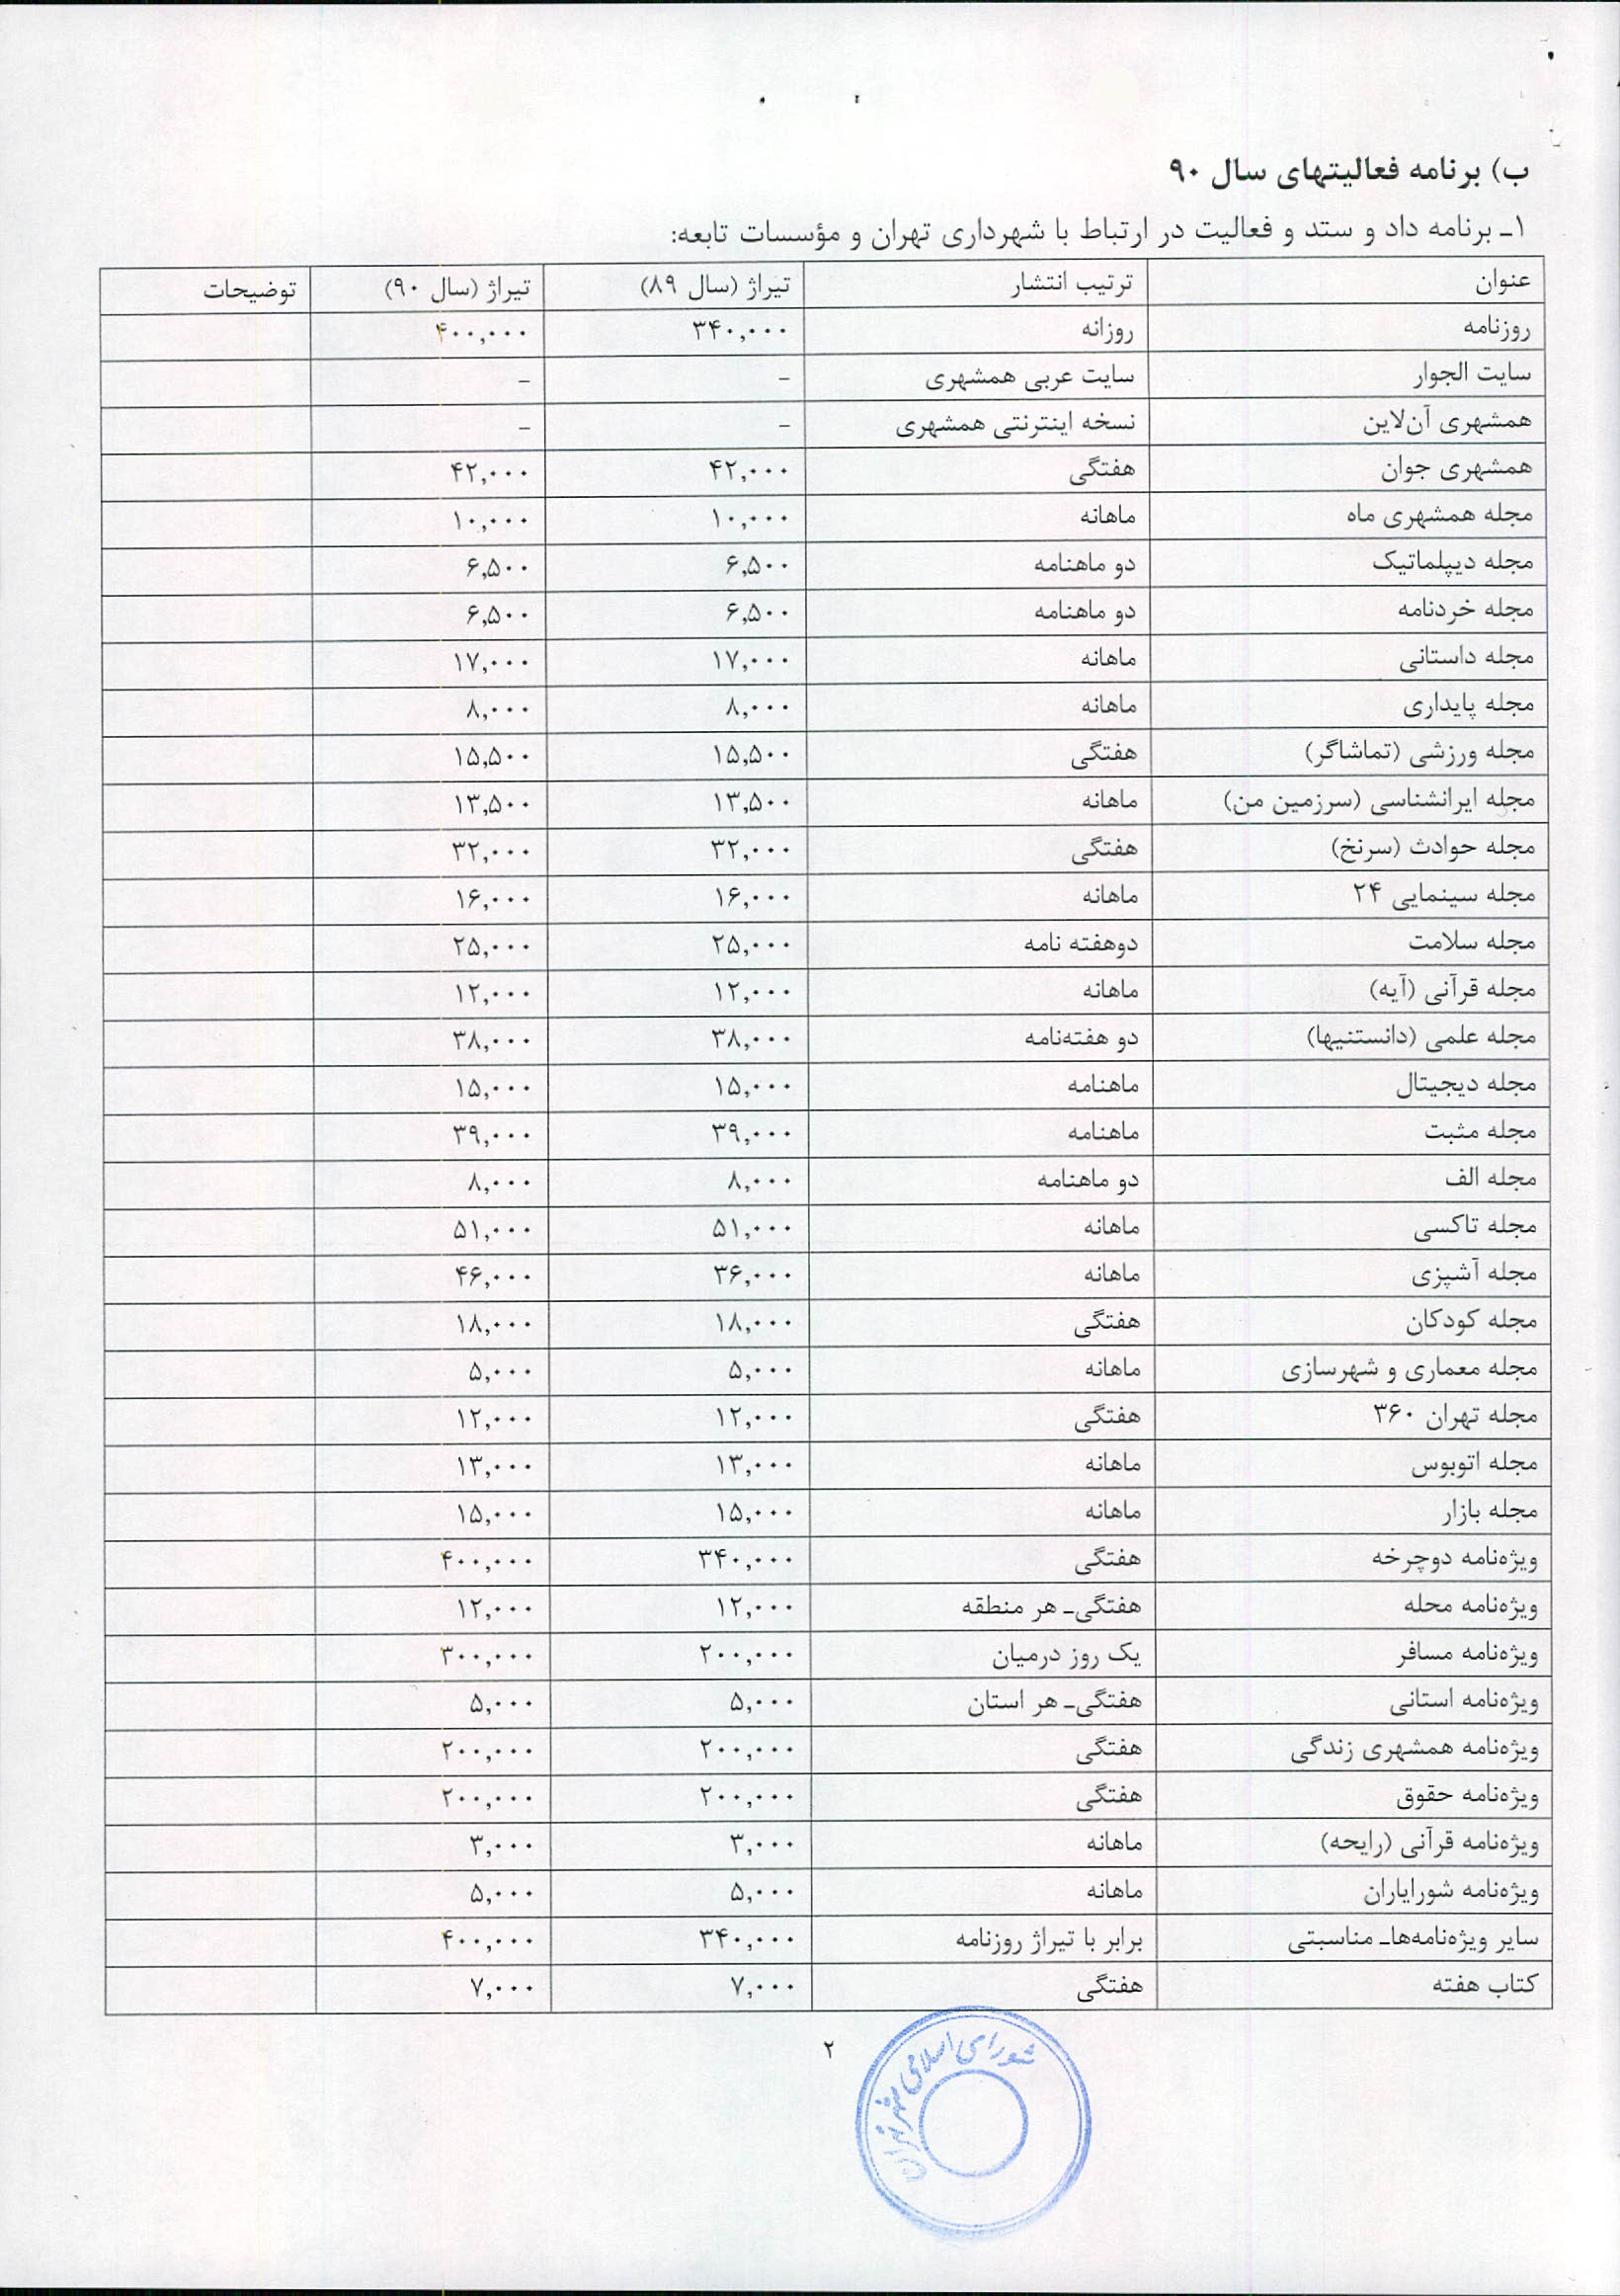 ب) برنامه فعالیتهای سال ۹۰
۱ـ برنامه داد و ستد و فعالیت در ارتباط با شهرداری تهران و مؤسسات تابعه:
عنوان ترتیب انتشار تیراژ (سال ۸۹) تیراژ (سال ۹۰) توضیحات
روزنامه روزانه ۳۴۰,۰۰۰ ۴۰۰,۰۰۰
سایت الجوار سایت عربی همشهری - -
همشهری آن‌لاین نسخه اینترنتی همشهری - -
همشهری جوان هفتگی ۴۲,۰۰۰ ۴۲,۰۰۰
مجله همشهری ماه ماهانه ۱۰,۰۰۰ ۱۰,۰۰۰
مجله دیپلماتیک دو ماهنامه ۶,۵۰۰ ۶,۵۰۰
مجله خردنامه دو ماهنامه ۶,۵۰۰ ۶,۵۰۰
مجله داستانی ماهانه ۱۷,۰۰۰ ۱۷,۰۰۰
مجله پایداری ماهانه ۸,۰۰۰ ۸,۰۰۰
مجله ورزشی (تماشاگر) هفتگی ۱۵,۵۰۰ ۱۵,۵۰۰
مجله ایرانشناسی (سرزمین من) ماهانه ۱۳,۵۰۰ ۱۳,۵۰۰
مجله حوادث (سرنخ) هفتگی ۳۲,۰۰۰ ۳۲,۰۰۰
مجله سینمایی ۲۴ ماهانه ۱۶,۰۰۰ ۱۶,۰۰۰
مجله سلامت دوهفته نامه ۲۵,۰۰۰ ۲۵,۰۰۰
مجله قرآنی (آیه) ماهانه ۱۲,۰۰۰ ۱۲,۰۰۰
مجله علمی (دانستنیها) دو هفته‌نامه ۳۸,۰۰۰ ۳۸,۰۰۰
مجله دیجیتال ماهنامه ۱۵,۰۰۰ ۱۵,۰۰۰
مجله مثبت ماهنامه ۳۹,۰۰۰ ۳۹,۰۰۰
مجله الف دو ماهنامه ۸,۰۰۰ ۸,۰۰۰
مجله تاکسی ماهانه ۵۱,۰۰۰ ۵۱,۰۰۰
مجله آشپزی ماهانه ۳۶,۰۰۰ ۴۶,۰۰۰
مجله کودکان هفتگی ۱۸,۰۰۰ ۱۸,۰۰۰
مجله معماری و شهرسازی ماهانه ۵,۰۰۰ ۵,۰۰۰
مجله تهران ۳۶۰ هفتگی ۱۲,۰۰۰ ۱۲,۰۰۰
مجله اتوبوس ماهانه ۱۳,۰۰۰ ۱۳,۰۰۰
مجله بازار ماهانه ۱۵,۰۰۰ ۱۵,۰۰۰
ویژه‌نامه دوچرخه هفتگی ۳۴۰,۰۰۰ ۴۰۰,۰۰۰
ویژه‌نامه محله هفتگی‌ـ هر منطقه ۱۲,۰۰۰ ۱۲,۰۰۰
ویژه‌نامه مسافر یک روز درمیان ۲۰۰,۰۰۰ ۳۰۰,۰۰۰
ویژه‌نامه استانی هفتگی‌ـ هر استان ۵,۰۰۰ ۵,۰۰۰
ویژه‌نامه همشهری زندگی هفتگی ۲۰۰,۰۰۰ ۲۰۰,۰۰۰
ویژه‌نامه حقوق هفتگی ۲۰۰,۰۰۰ ۲۰۰,۰۰۰
ویژه‌نامه قرآنی (رایحه) ماهانه ۳,۰۰۰ ۳,۰۰۰
ویژه‌نامه شورایاران ماهانه ۵,۰۰۰ ۵,۰۰۰
سایر ویژه‌نامه‌هاـ مناسبتی برابر با تیراژ روزنامه ۳۴۰,۰۰۰ ۴۰۰,۰۰۰
کتاب هفته هفتگی ۷,۰۰۰ ۷,۰۰۰
۲
شورای اسلامی شهر تهران